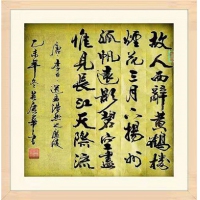 故人西辭黃鶴樓
煙花三月下揚州
孤帆遠影碧空盡
惟見長江天際流
唐 李白 送孟浩然之廣陵
乙未年冬